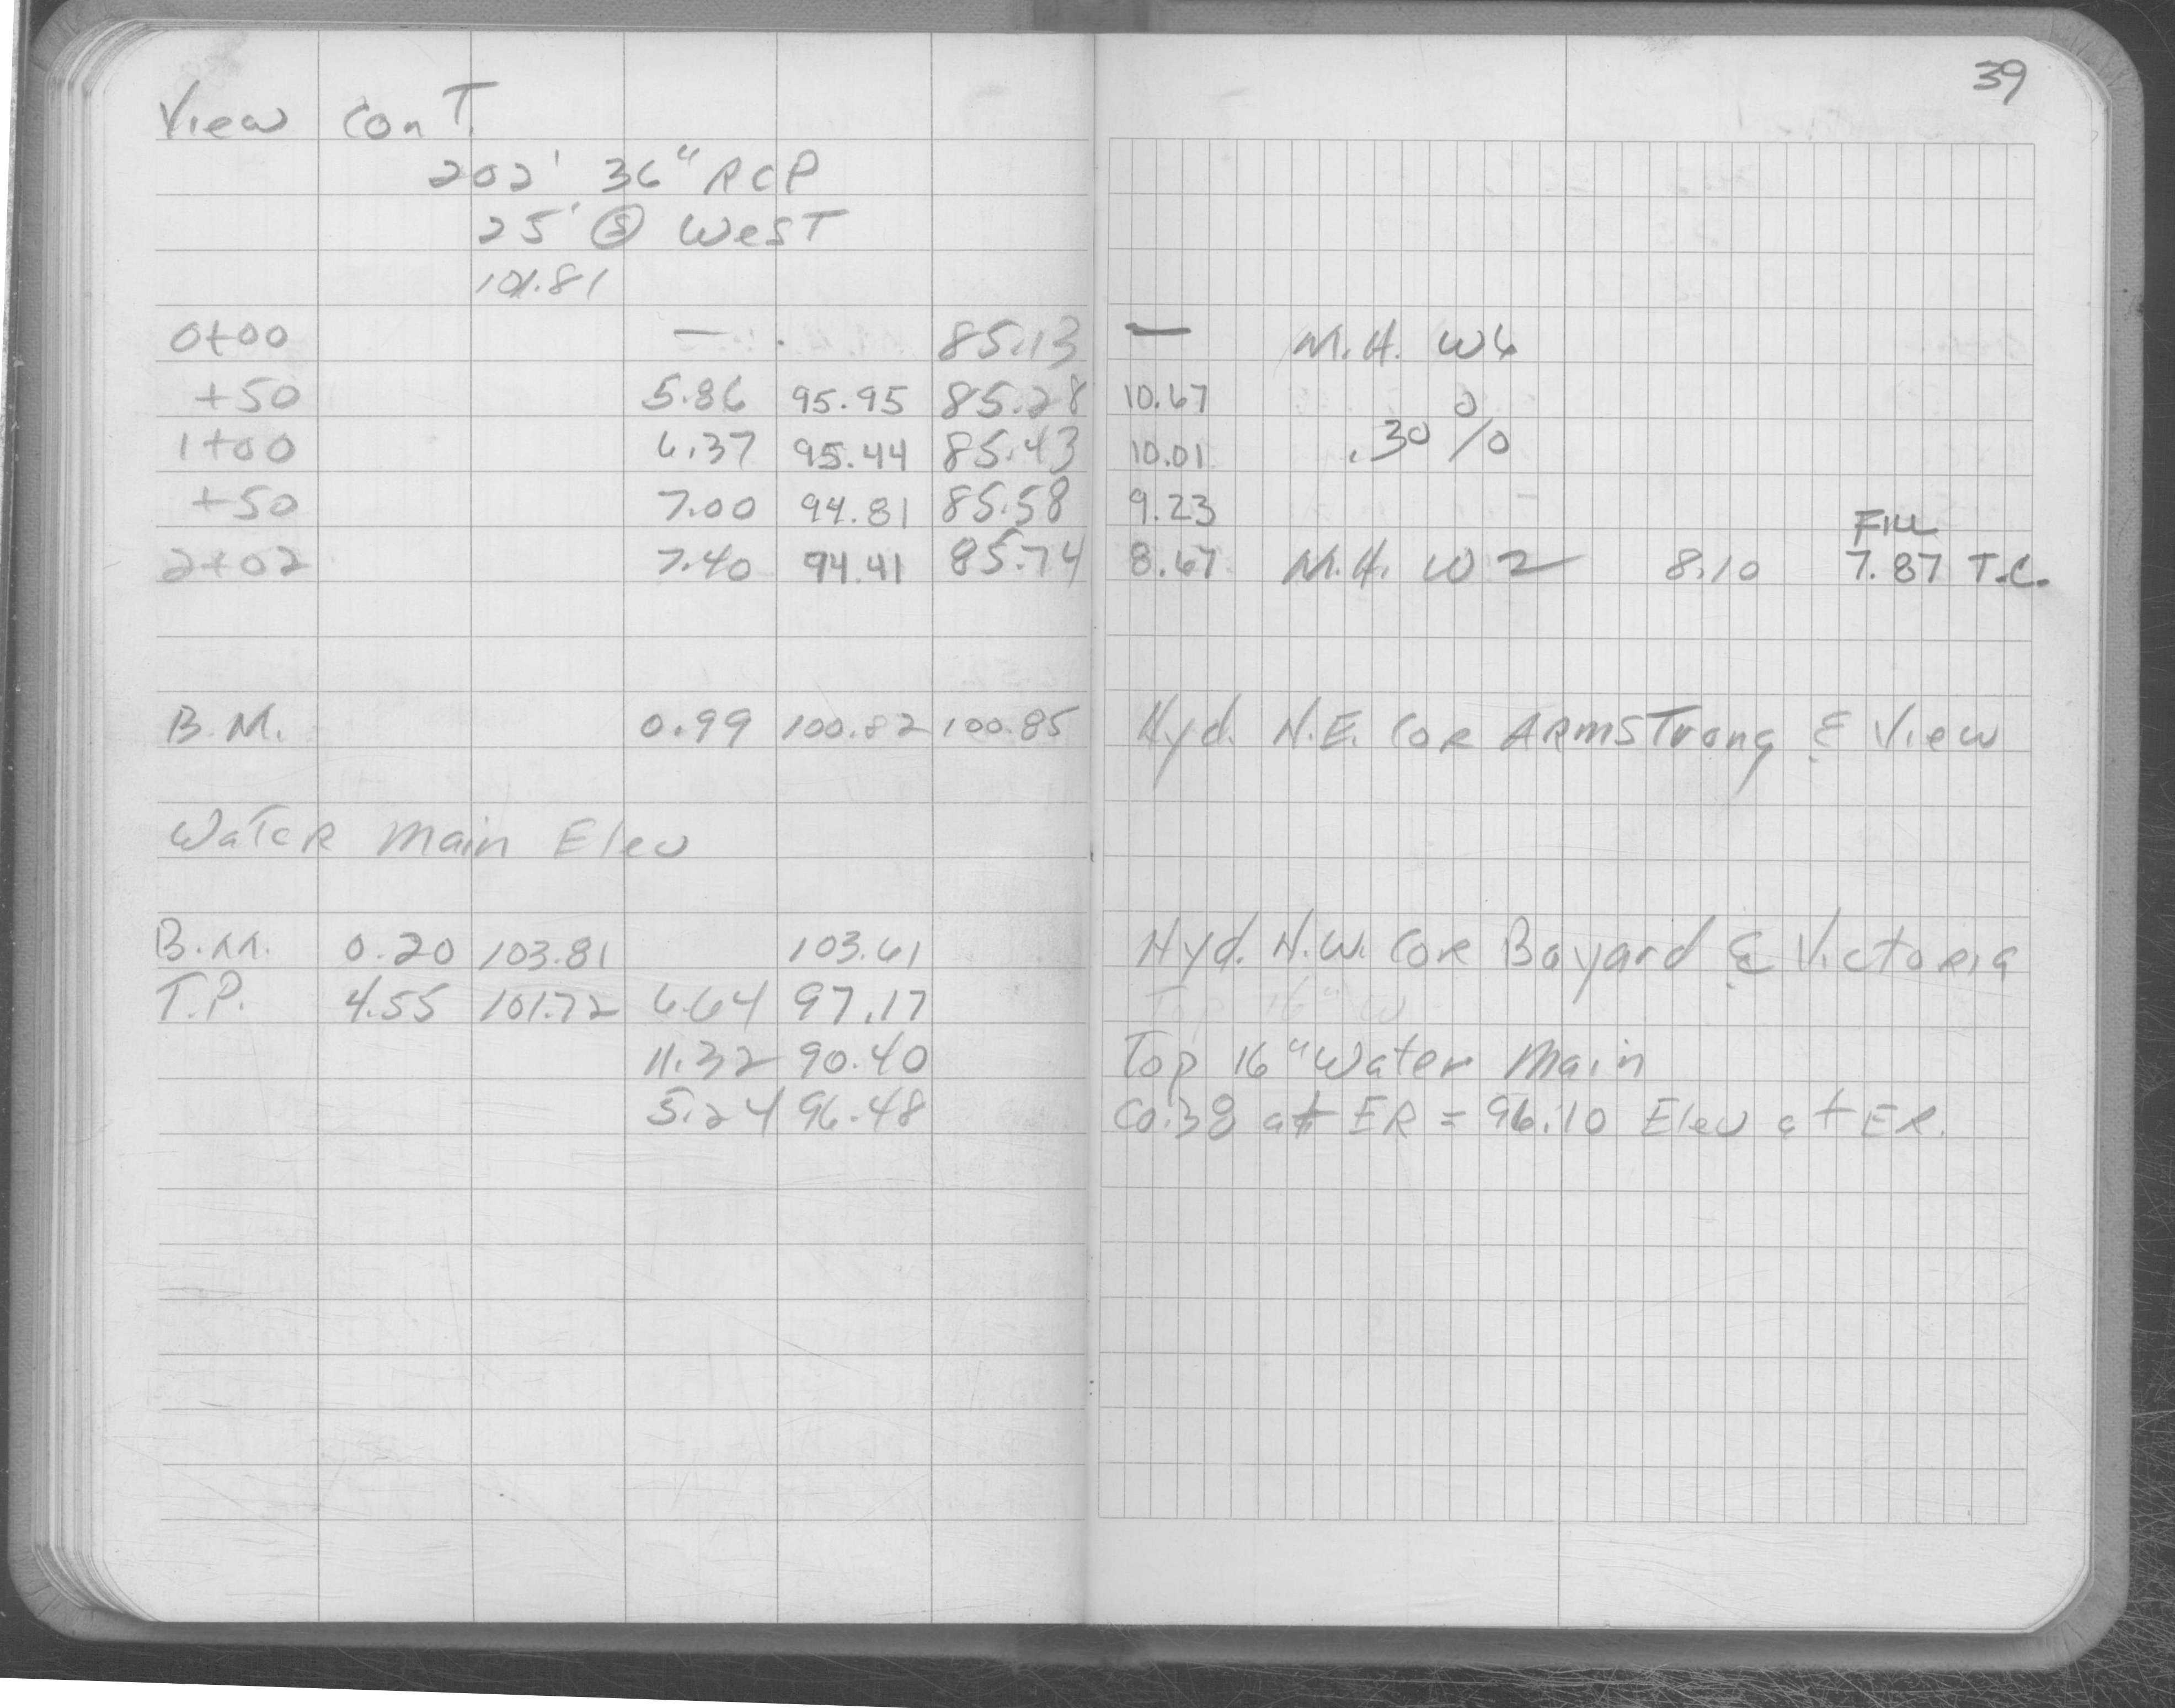 39
View Con T.
202' 36" RCP
25' Ⓢ WesT
101.81
0+00 — 85.13 — M.H. W6
+50 5.86 95.95 85.28 10.67
1+00 6.37 95.44 85.43 10.01 .30 %
+50 7.00 94.81 85.58 9.23 FILL
2+02 7.40 94.41 85.74 8.67 M.H. W2 8.10 7.87 T.C.
B.M. 0.99 100.82 100.85 Hyd. N.E. Cor ARMSTrong & View
WaTeR Main Elev
B.M. 0.20 103.81 103.61 Hyd. N.W. Cor Bayard & Victoria
T.P. 4.55 101.72 6.64 97.17 Top 16" W
11.32 90.40 Top 16" Water Main
5.24 96.48 C0.38 at ER = 96.10 Elev at ER.